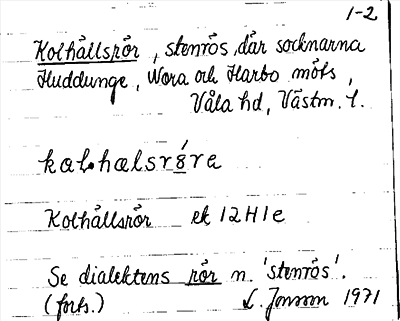 1-2
Kolhållsrör, stenrös, där socknarna
Huddunge, Nora och Harbo möts,
Våla hd, Västm. l.
Kolhållsrör ek 12H1e
Se dialektens rör n. 'stenrös'.
(forts.) L. Jonsson 1971